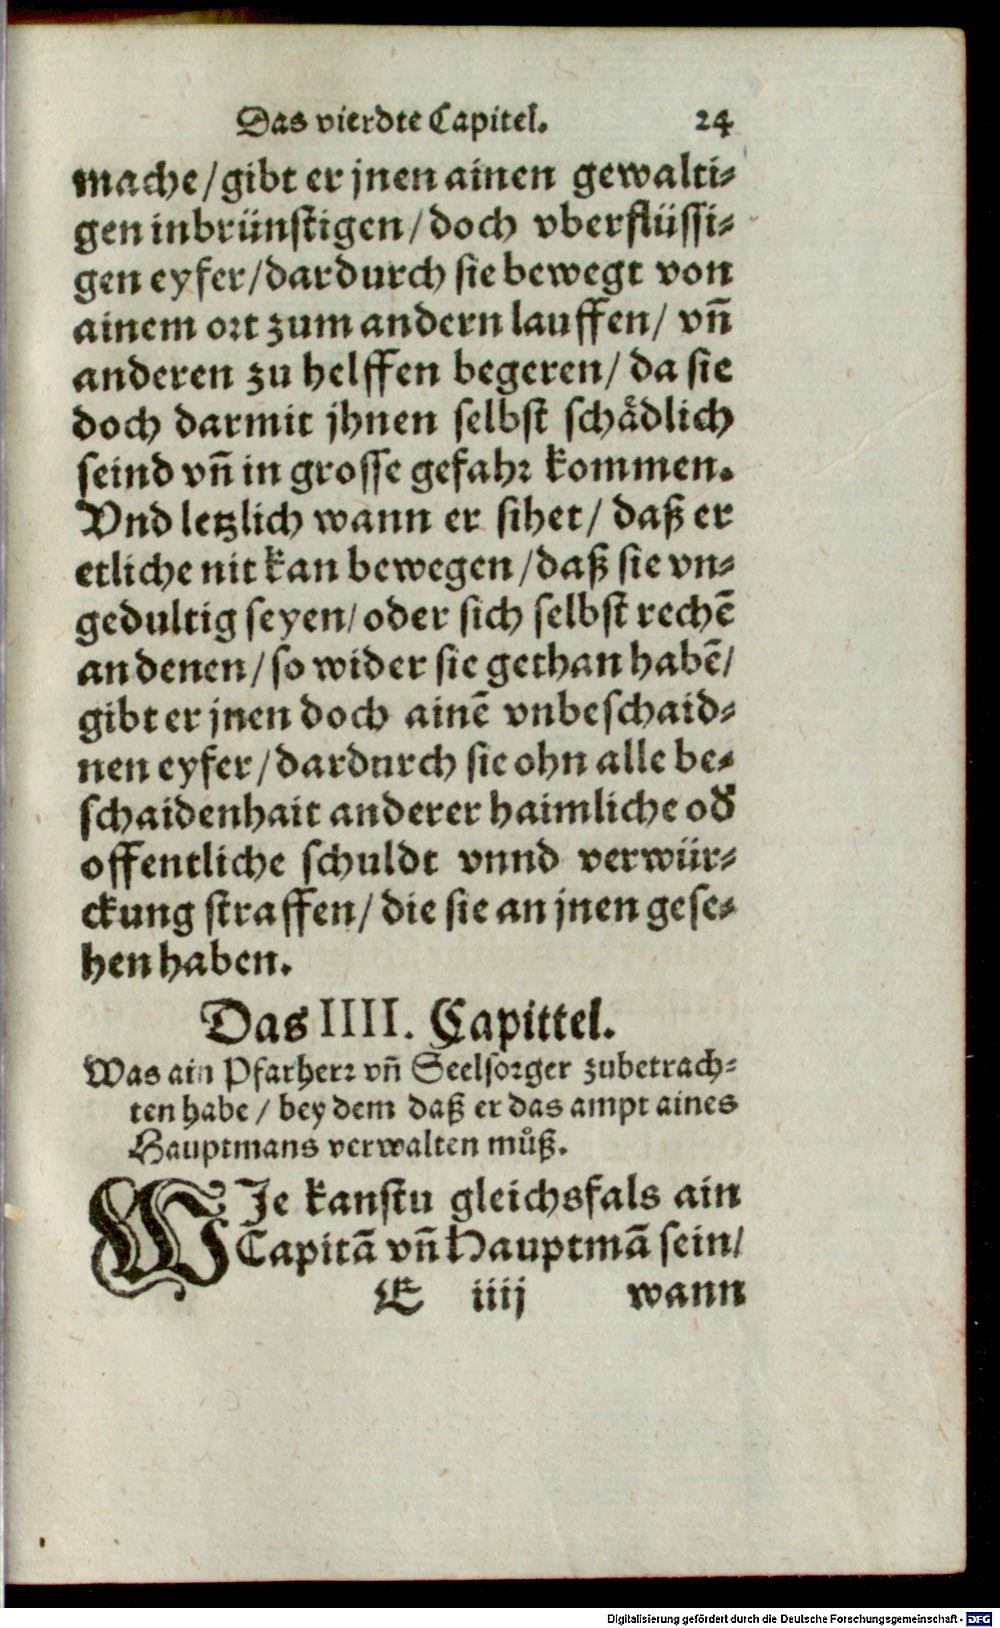 Das vierdte Capitel. 24
mache/gibt er jnen ainen gewalti⸗
gen inbrünstigen/doch vberflüssi⸗
gen eyfer/dardurch sie bewegt von
ainem ort zum andern lauffen/ vn̄
anderen zu helffen begeren/ da sie
doch darmit jhnen selbst schådlich
seind vn̄ in grosse gefahr kommen.
Vnd letzlich wann er sihet/ daß er
etliche nit kan bewegen/daß sie vn⸗
gedultig seyen/oder sich selbst rechē
an denen/so wider sie gethan habē/
gibt er jnen doch ainē vnbeschaid⸗
nen eyfer/dardurch sie ohn alle be⸗
schaidenhait anderer haimliche oď
offentliche schuldt vnnd verwür⸗
ckung straffen/ die sie an jnen gese⸗
hen haben.
Das IIII. Capittel.
Was ain Pfarherr vn̄ Seelsorger zubetrach⸗
ten habe / bey dem daß er das ampt aines
Hauptmans verwalten můß.
WJe kanstu gleichsfals ain
Capitā vn̄ Hauptmā sein/
E iiij wann
Digitalisierung gefördert durch die Deutsche Forschungsgemeinschaft - DFG